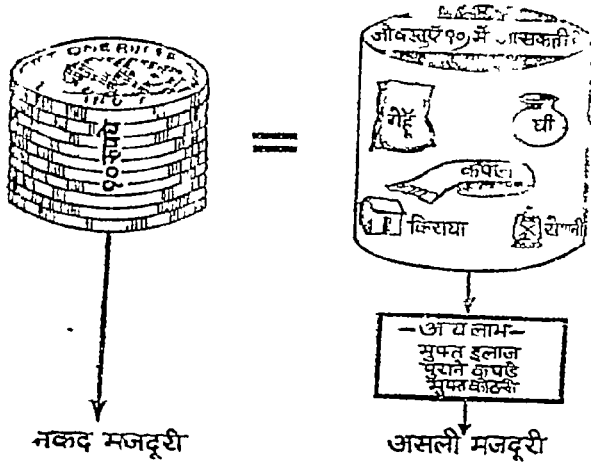 ONE RUPEE
जो वस्तुएँ १०) में आ सकती
गेहूँ
घी
कपड़ा
किराया
रोशनी
— अन्य लाभ —
मुफ्त इलाज
पुराने कपडे
मुफ्त कोठरी
नकद मजदूरी
असली मजदूरी